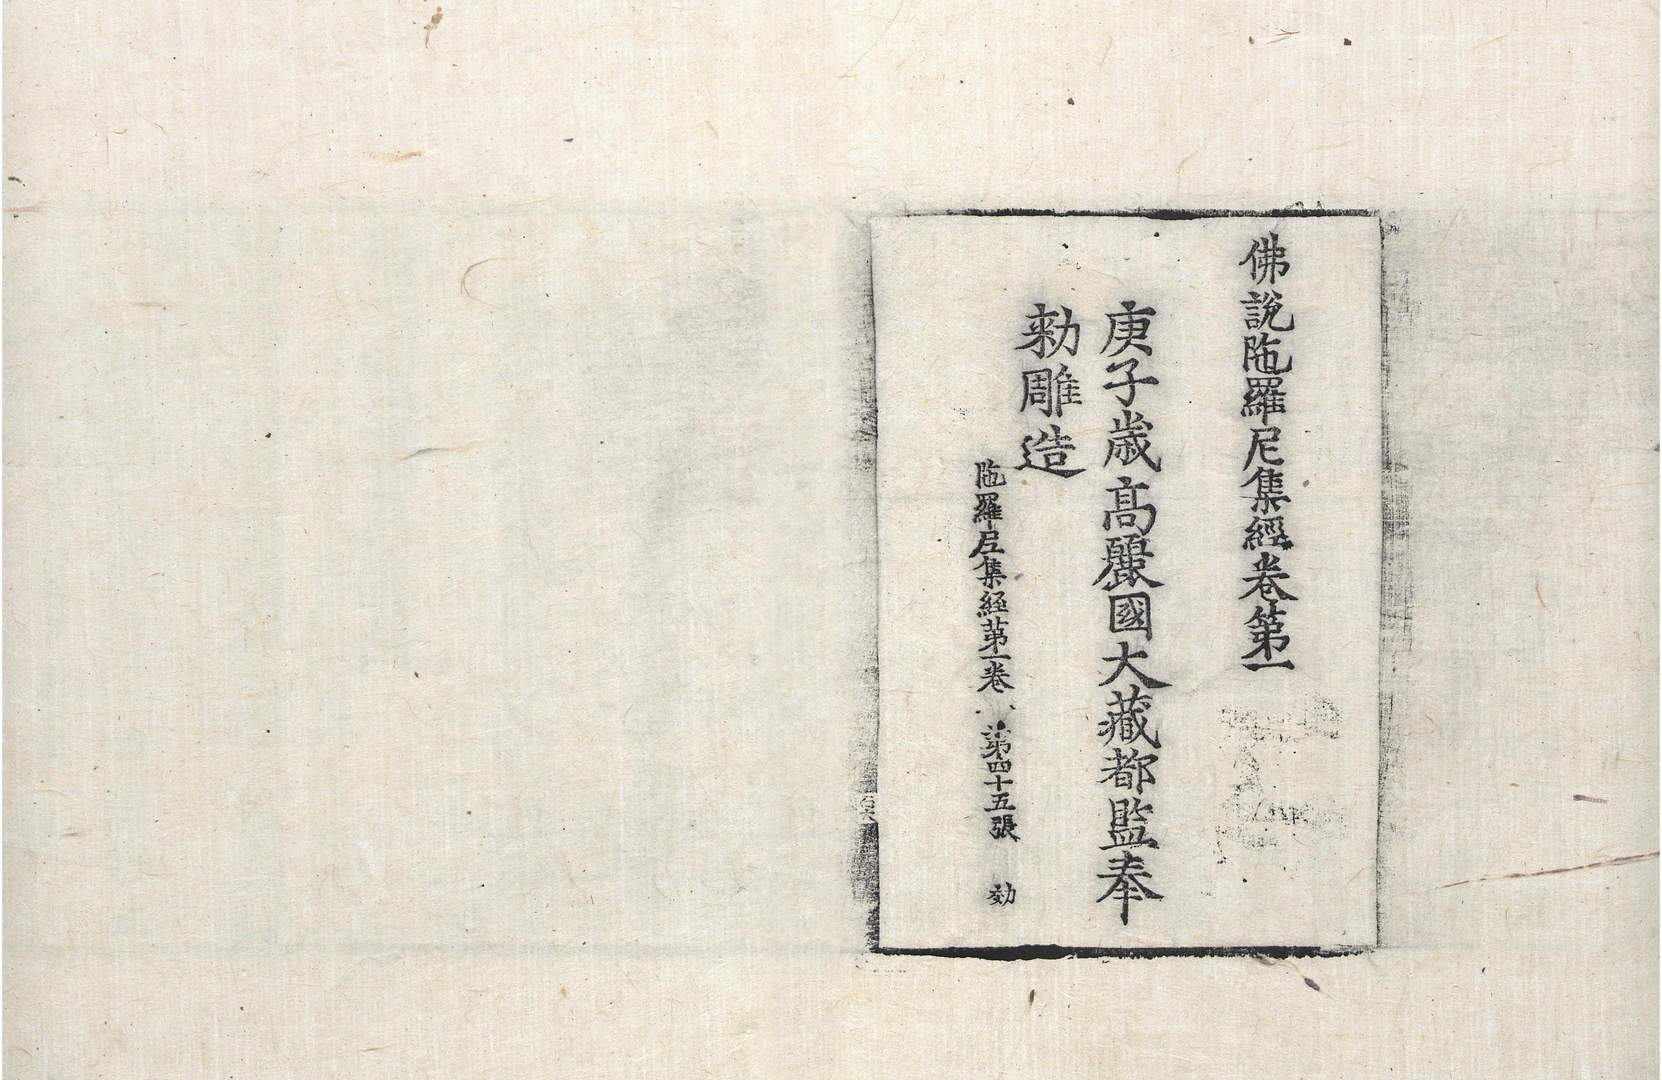 佛說陁羅尼集經卷第一
庚子歲高麗國大藏都監奉
勅雕造
陁羅尼集經第一卷 第四十五張 効